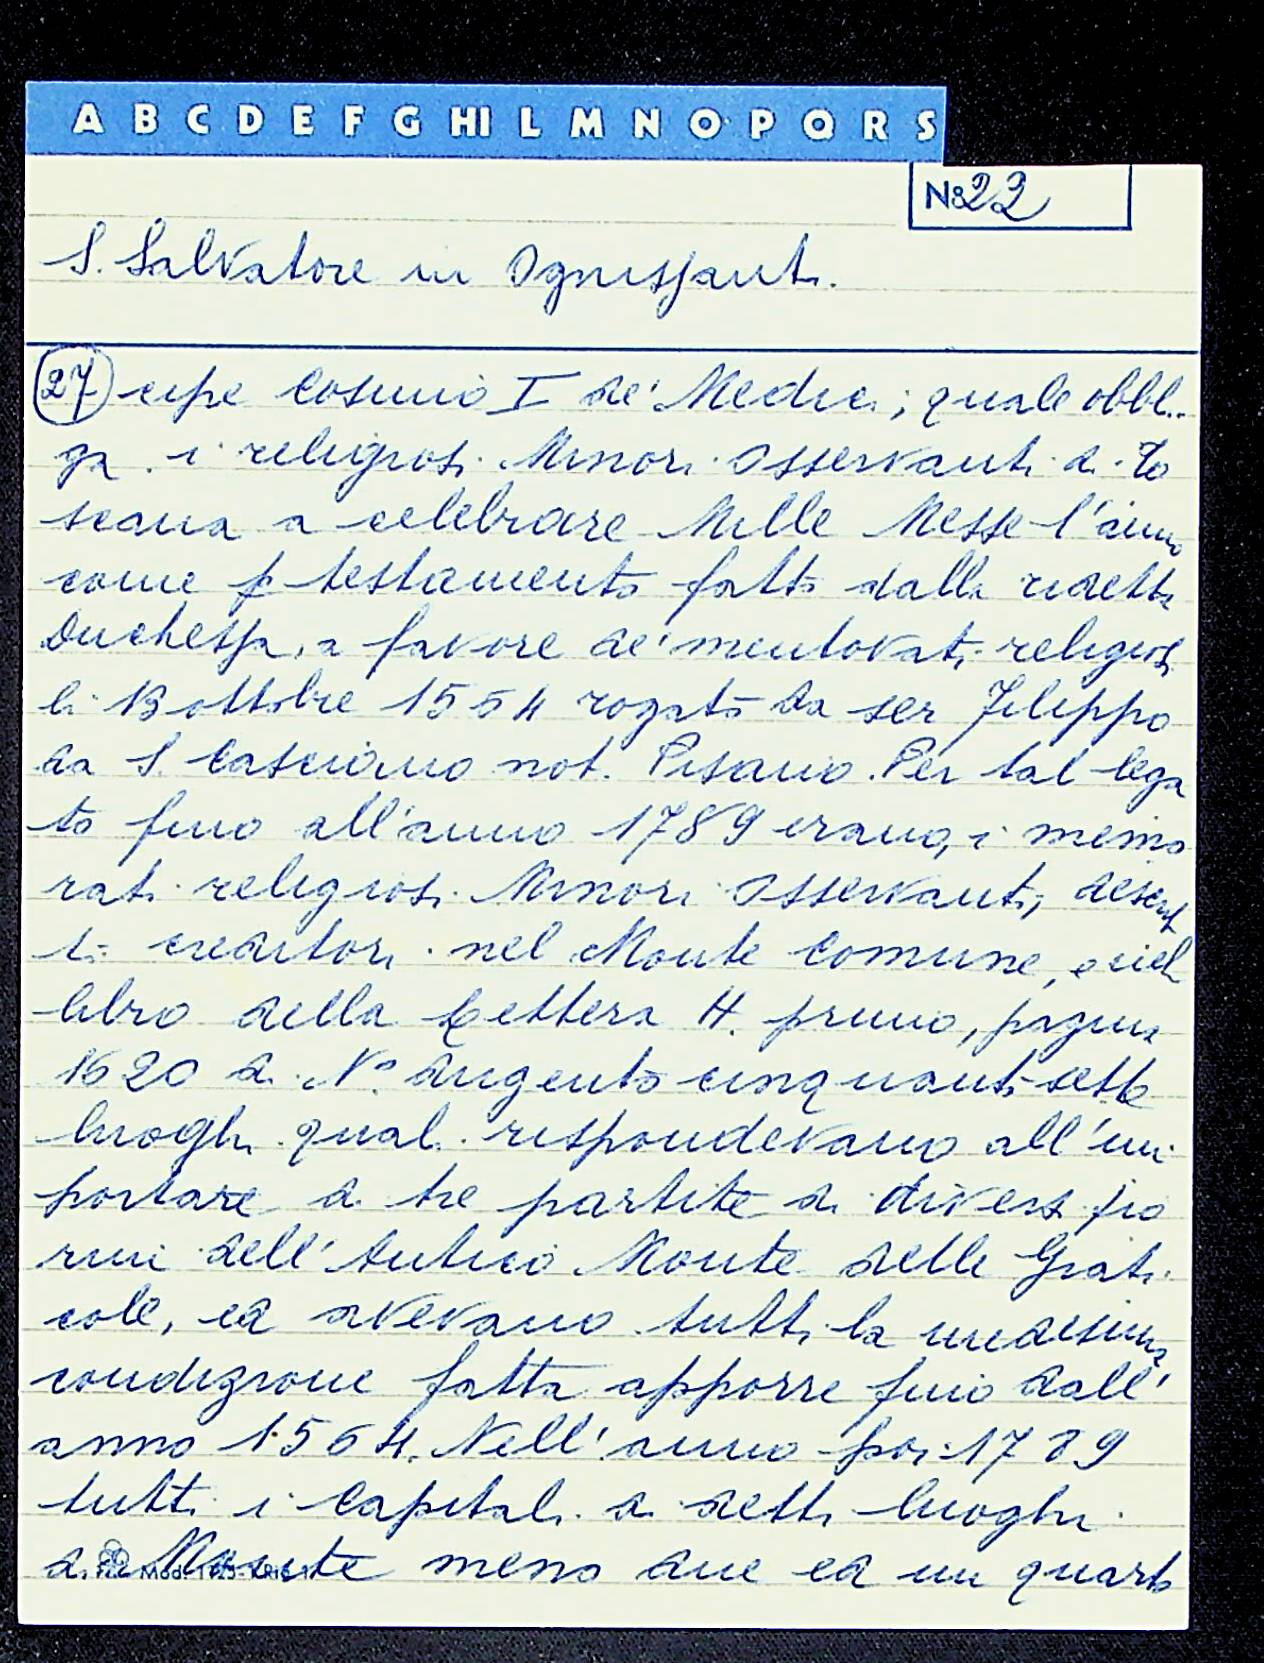 A B C D E F G HI L M N O P Q R S
No 22
S. Salvatore in Ognissanti.
27 cipe Cosimo I de' Medici; quale obbli-
ga i religiosi Minori Osservanti di To
scana a celebrare Mille Messe l'anno
come p testamento fatto dalla ridetta
Duchessa, a favore de' mentovati religiosi
li 13 ottobre 1554 rogato da ser Filippo
da S. Casciano not. Pisano. Per tal lega
to fino all'anno 1789 erano, i memo
rati religiosi Minori Osservanti, descrit
ti creditori nel Monte Comune, e nel
libro della Lettera H. primo, pagina
1620 di N° dugento cinquanti sette
luoghi quali rispondevano all'im
portare di tre partite di diversi fio
rini dell'Antico Monte delle Grati
cole, ed avevano tutti la medesima
condizione fatta apporre fino dall'
anno 1564. Nell'anno poi 1789
tutti i Capitali di detti luoghi
di Monte meno due ed un quarto